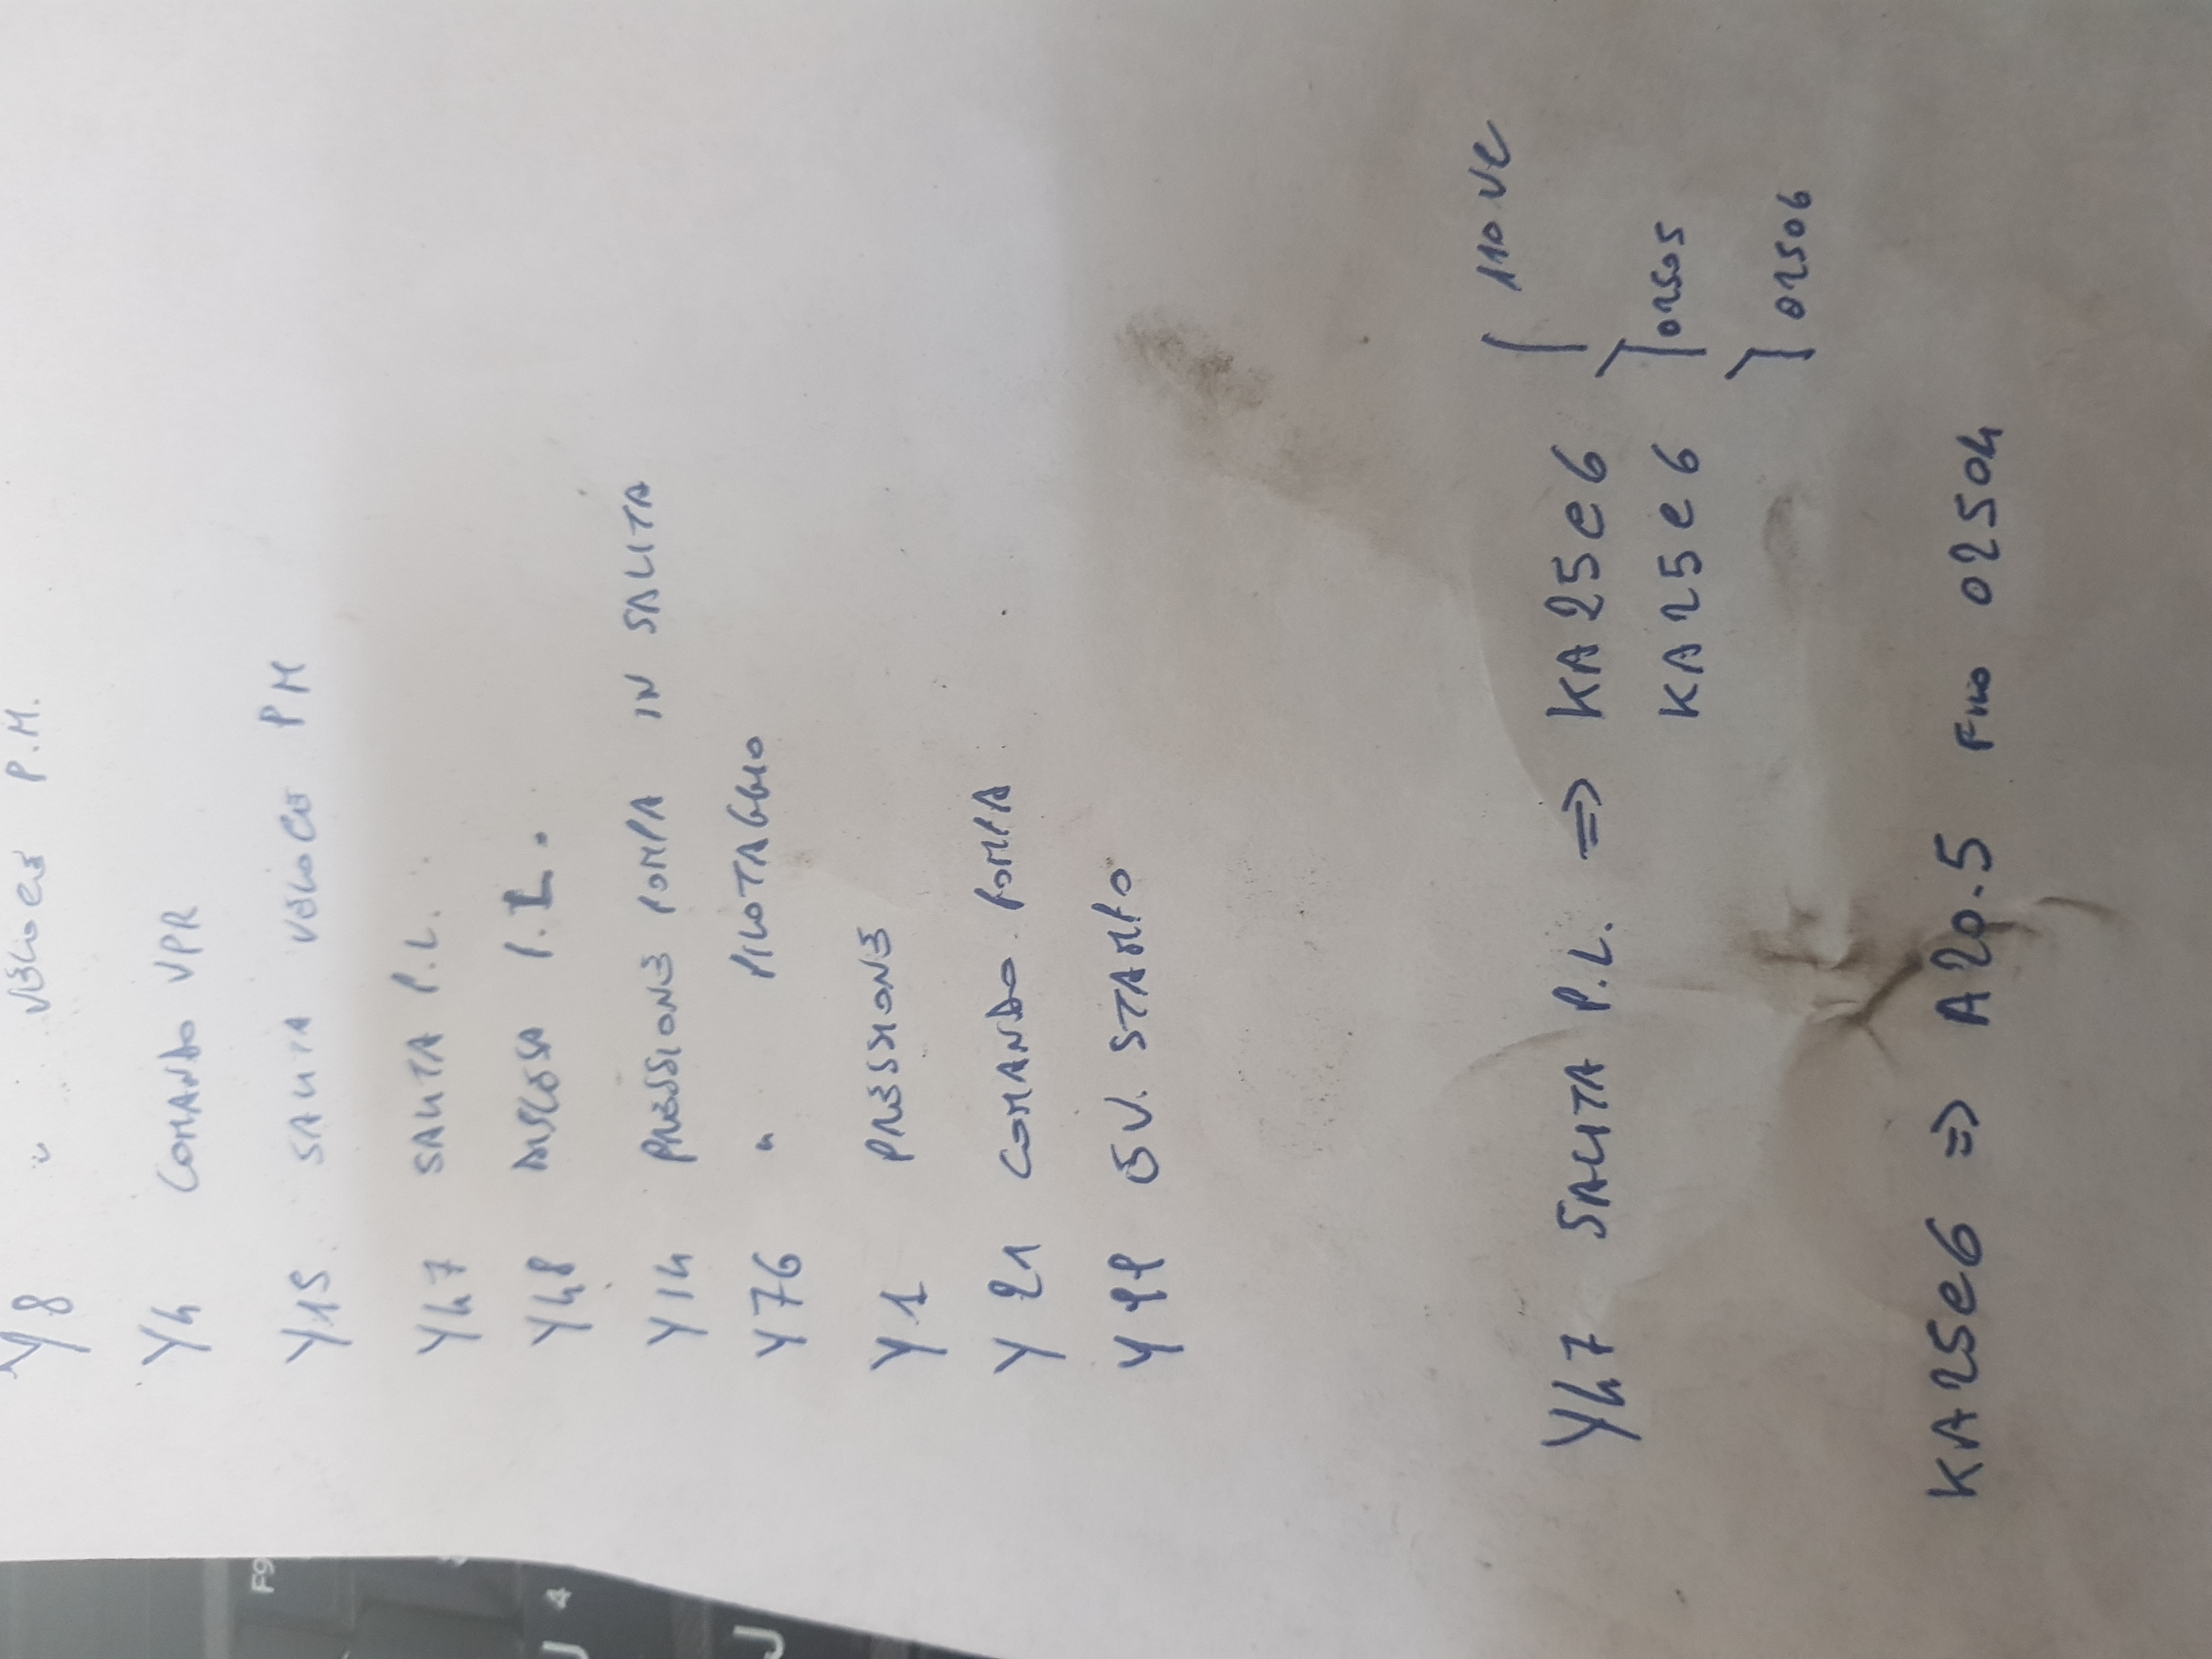 Y8 " VELOCE P.M.
Y4 COMANDO VPR
Y15 SALITA VELOCE PM
Y47 SALITA P.L.
Y48 DISCESA P.L.
Y14 PRESSIONE POMPA IN SALITA
Y76 " PILOTAGGIO
Y1 PRESSIONE
Y21 COMANDO POMPA
EV. STAMPO
Y47 SALITA P.L. => KA25e6 { 110 VC
KA25e6 } 02505
} 02506
KA25e6 => A20.5 FILO 02504
F9
J 4
J